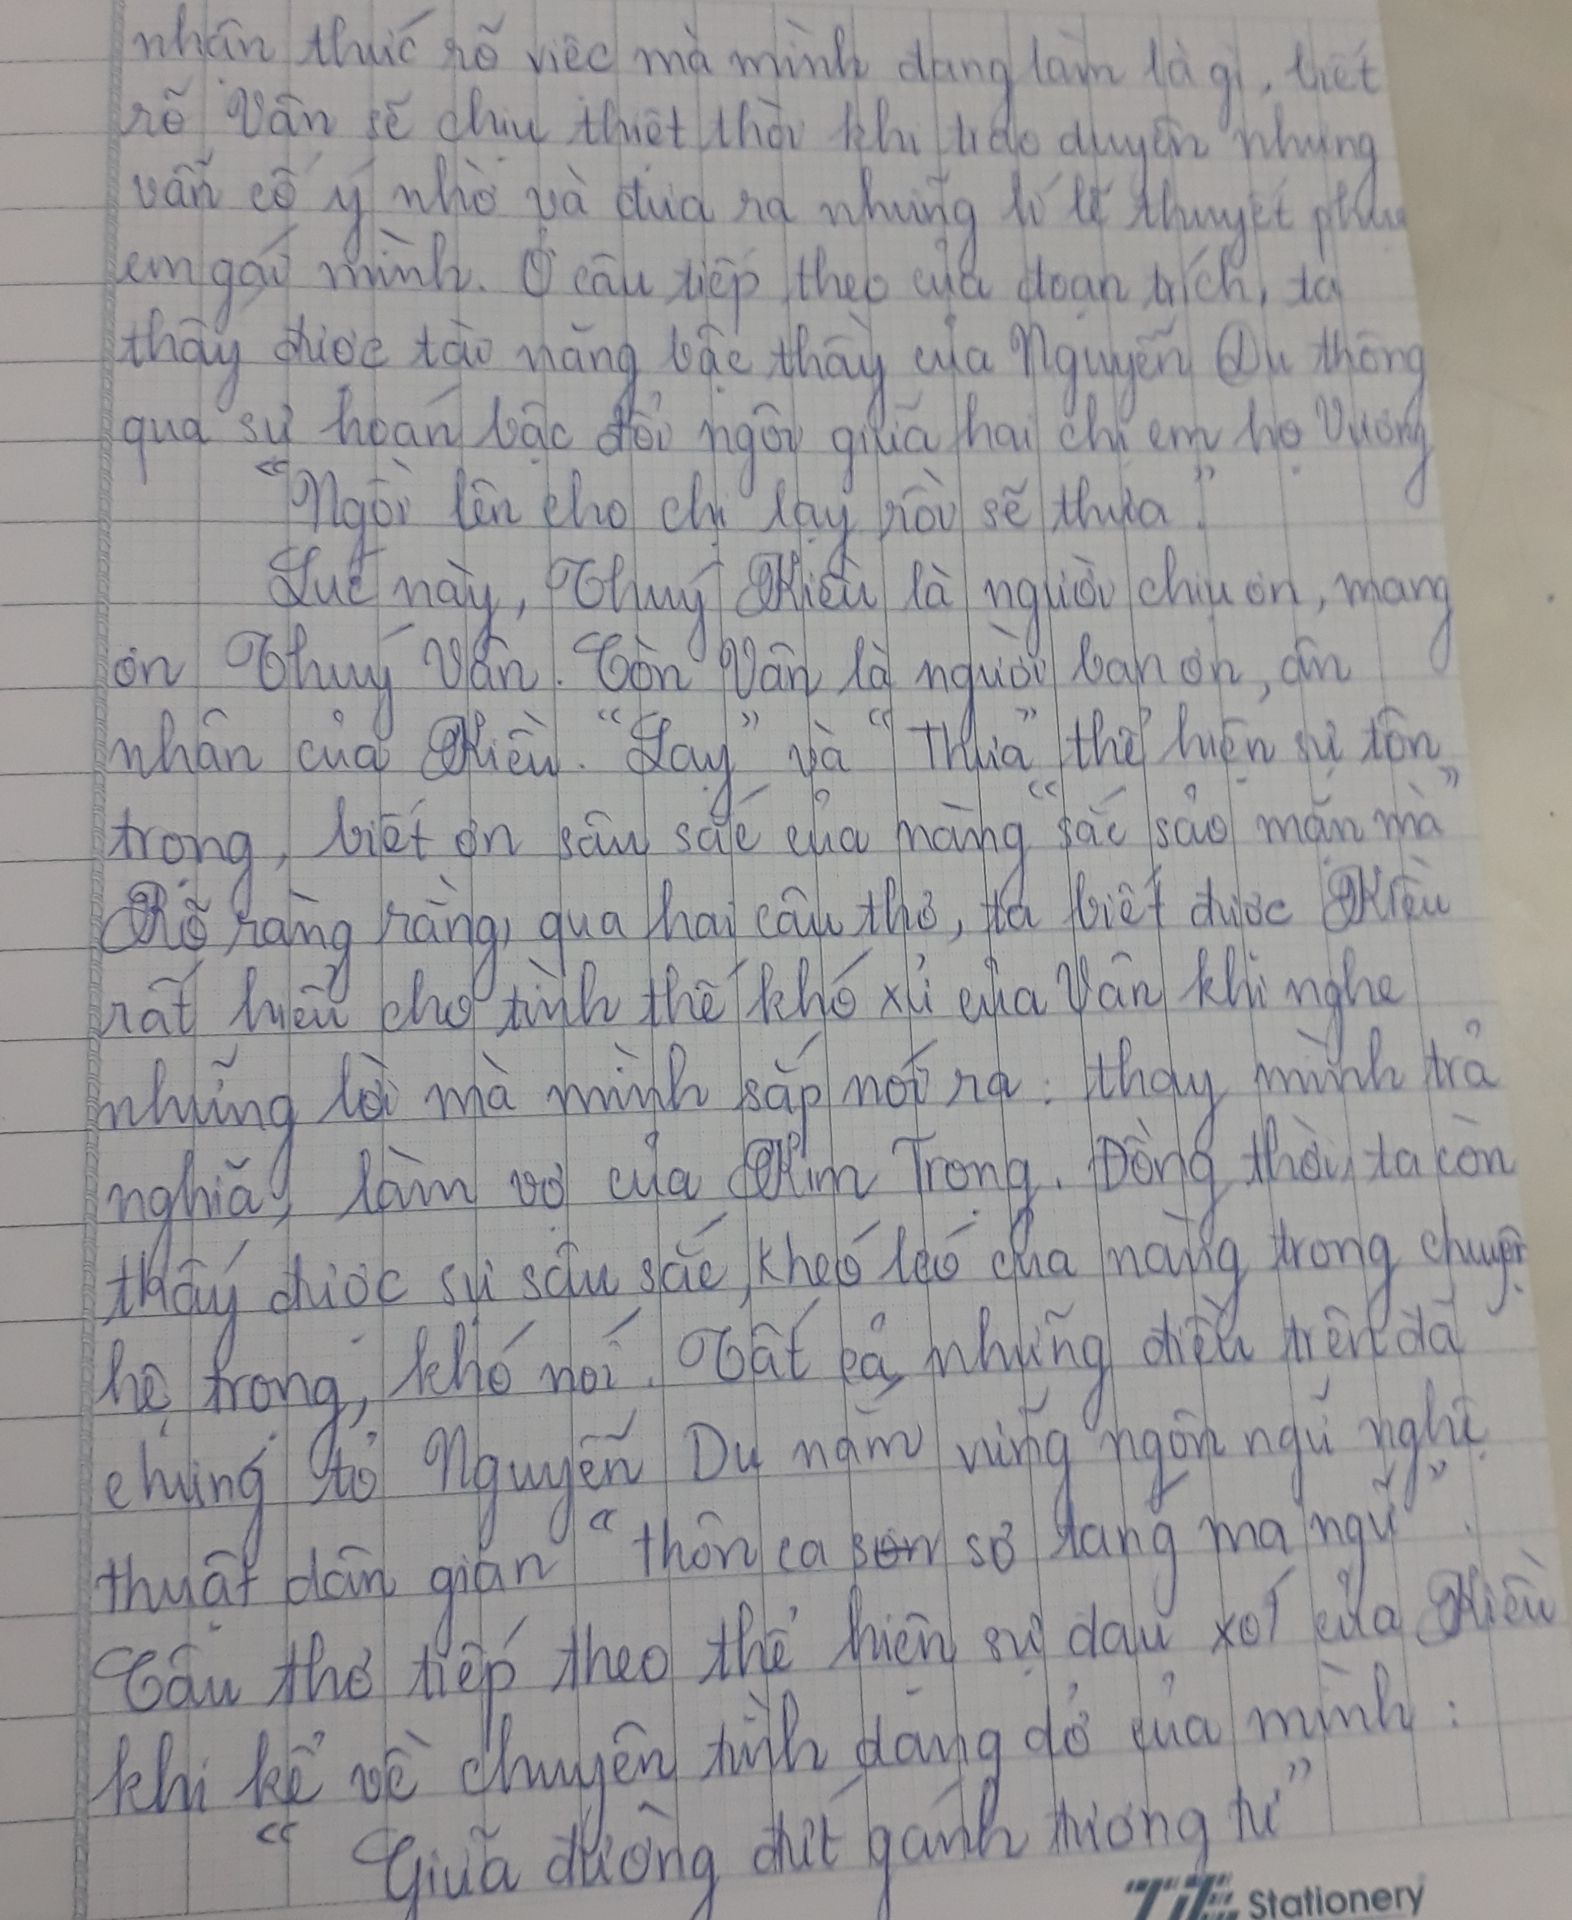 nhân thức rõ việc mà mình đang làm là gì, biết
rõ Vân sẽ chịu thiệt thòi khi trao duyên nhưng
vẫn cố ý nhờ và đưa ra những lí lẽ thuyết phục
em gái mình. Ở câu tiếp theo của đoạn trích, ta
thấy được tài năng bậc thầy của Nguyễn Du thông
qua sự hoán bậc đổi ngôi giữa hai chị em họ Vương
"Ngồi lên cho chị lạy rồi sẽ thưa."
Lúc này, Thuý Kiều là người chịu ơn, mang
ơn Thuý Vân. Còn Vân là người ban ơn, ân
nhân của Kiều. "Lạy" và "Thưa" thể hiện sự tôn
trọng, biết ơn sâu sắc của nàng "sắc sảo mặn mà"
Rõ ràng ràng, qua hai câu thơ, ta biết được Kiều
rất hiểu cho tình thế khó xử của Vân khi nghe
những lời mà mình sắp nói ra: thay mình trả
nghĩa, làm vợ của Kim Trọng. Đồng thời, ta còn
thấy được sự sâu sắc, khéo léo của nàng trong chuyện
hệ trọng, khó nói. Tất cả những điều trên đã
chứng tỏ Nguyễn Du nắm vững ngôn ngữ nghệ
thuật dân gian "thôn ca sơ tang ma ngữ".
Câu thơ tiếp theo thể hiện sự đau xót của Kiều
khi kể về chuyện tình dang dở của mình:
"Giữa đường đứt gánh tương tư"
TiZ Stationery